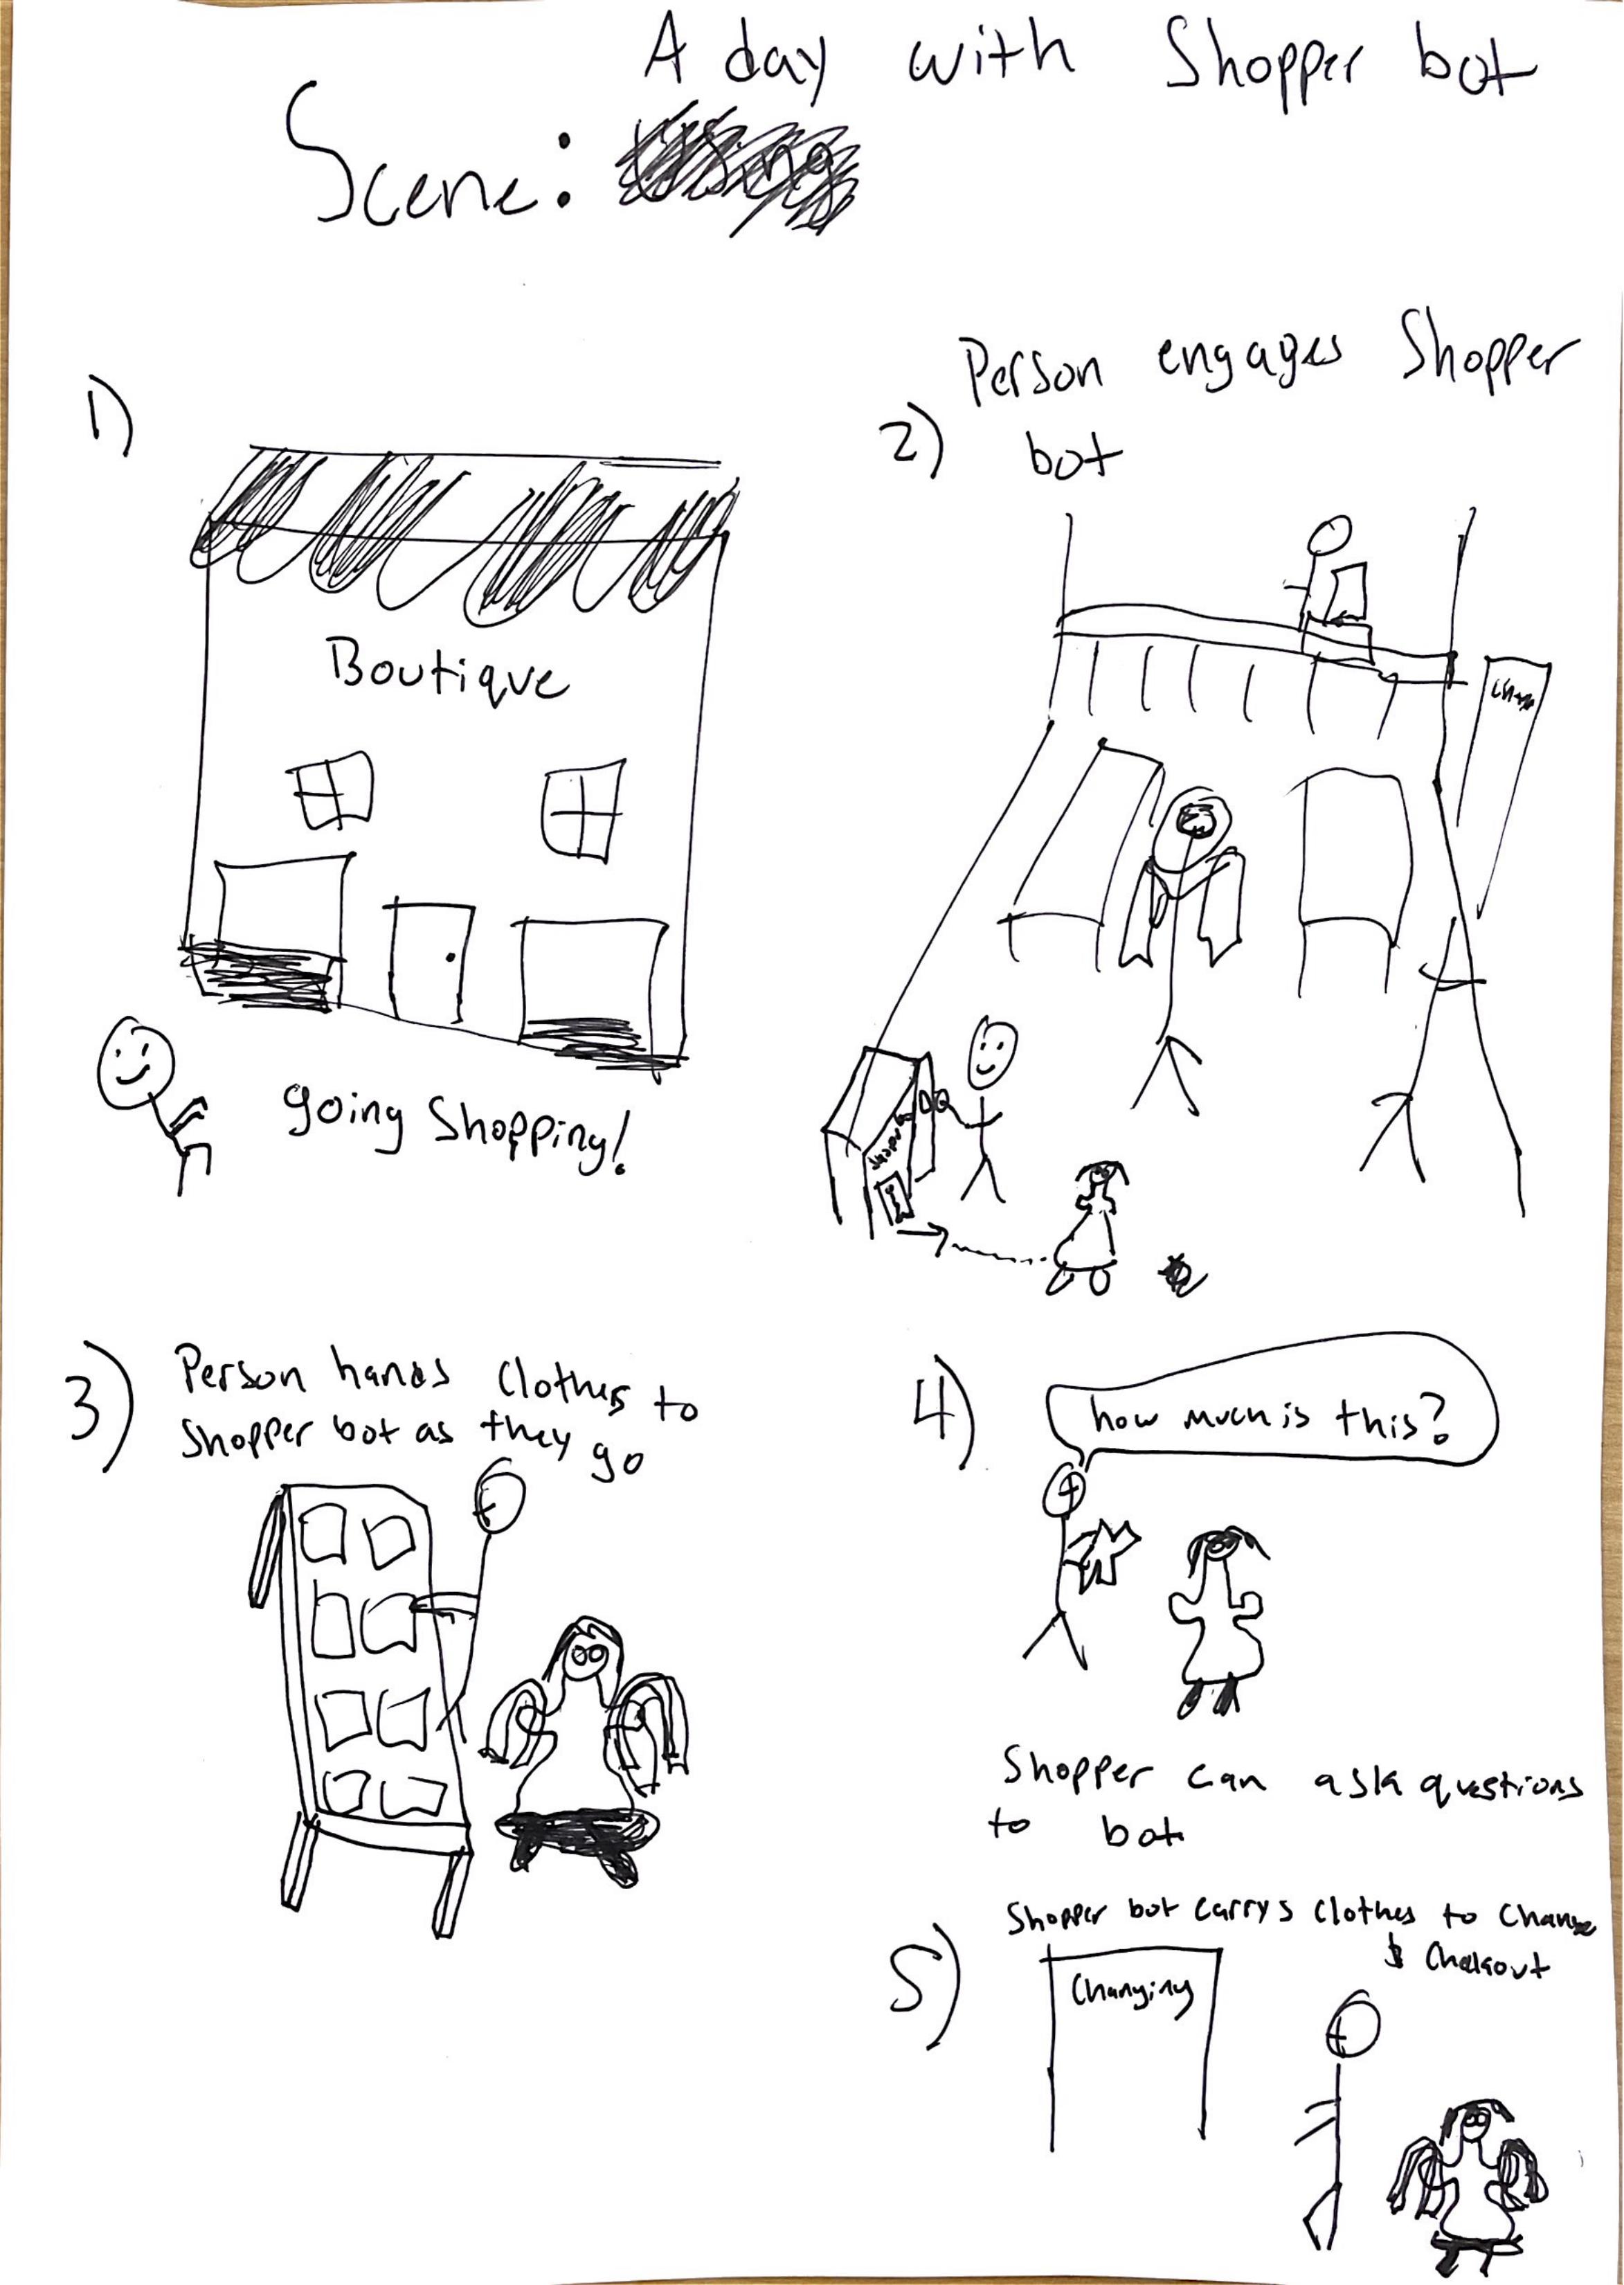 A day with Shopper bot
Scene:
1)
Boutique
going Shopping!
2)
Person engages Shopper
bot
3)
Person hands Clothes to
Shopper bot as they go
4)
how much is this?
Shopper can ask questions
to bot
5)
Shopper bot Carrys Clothes to Change
& Checkout
Changing